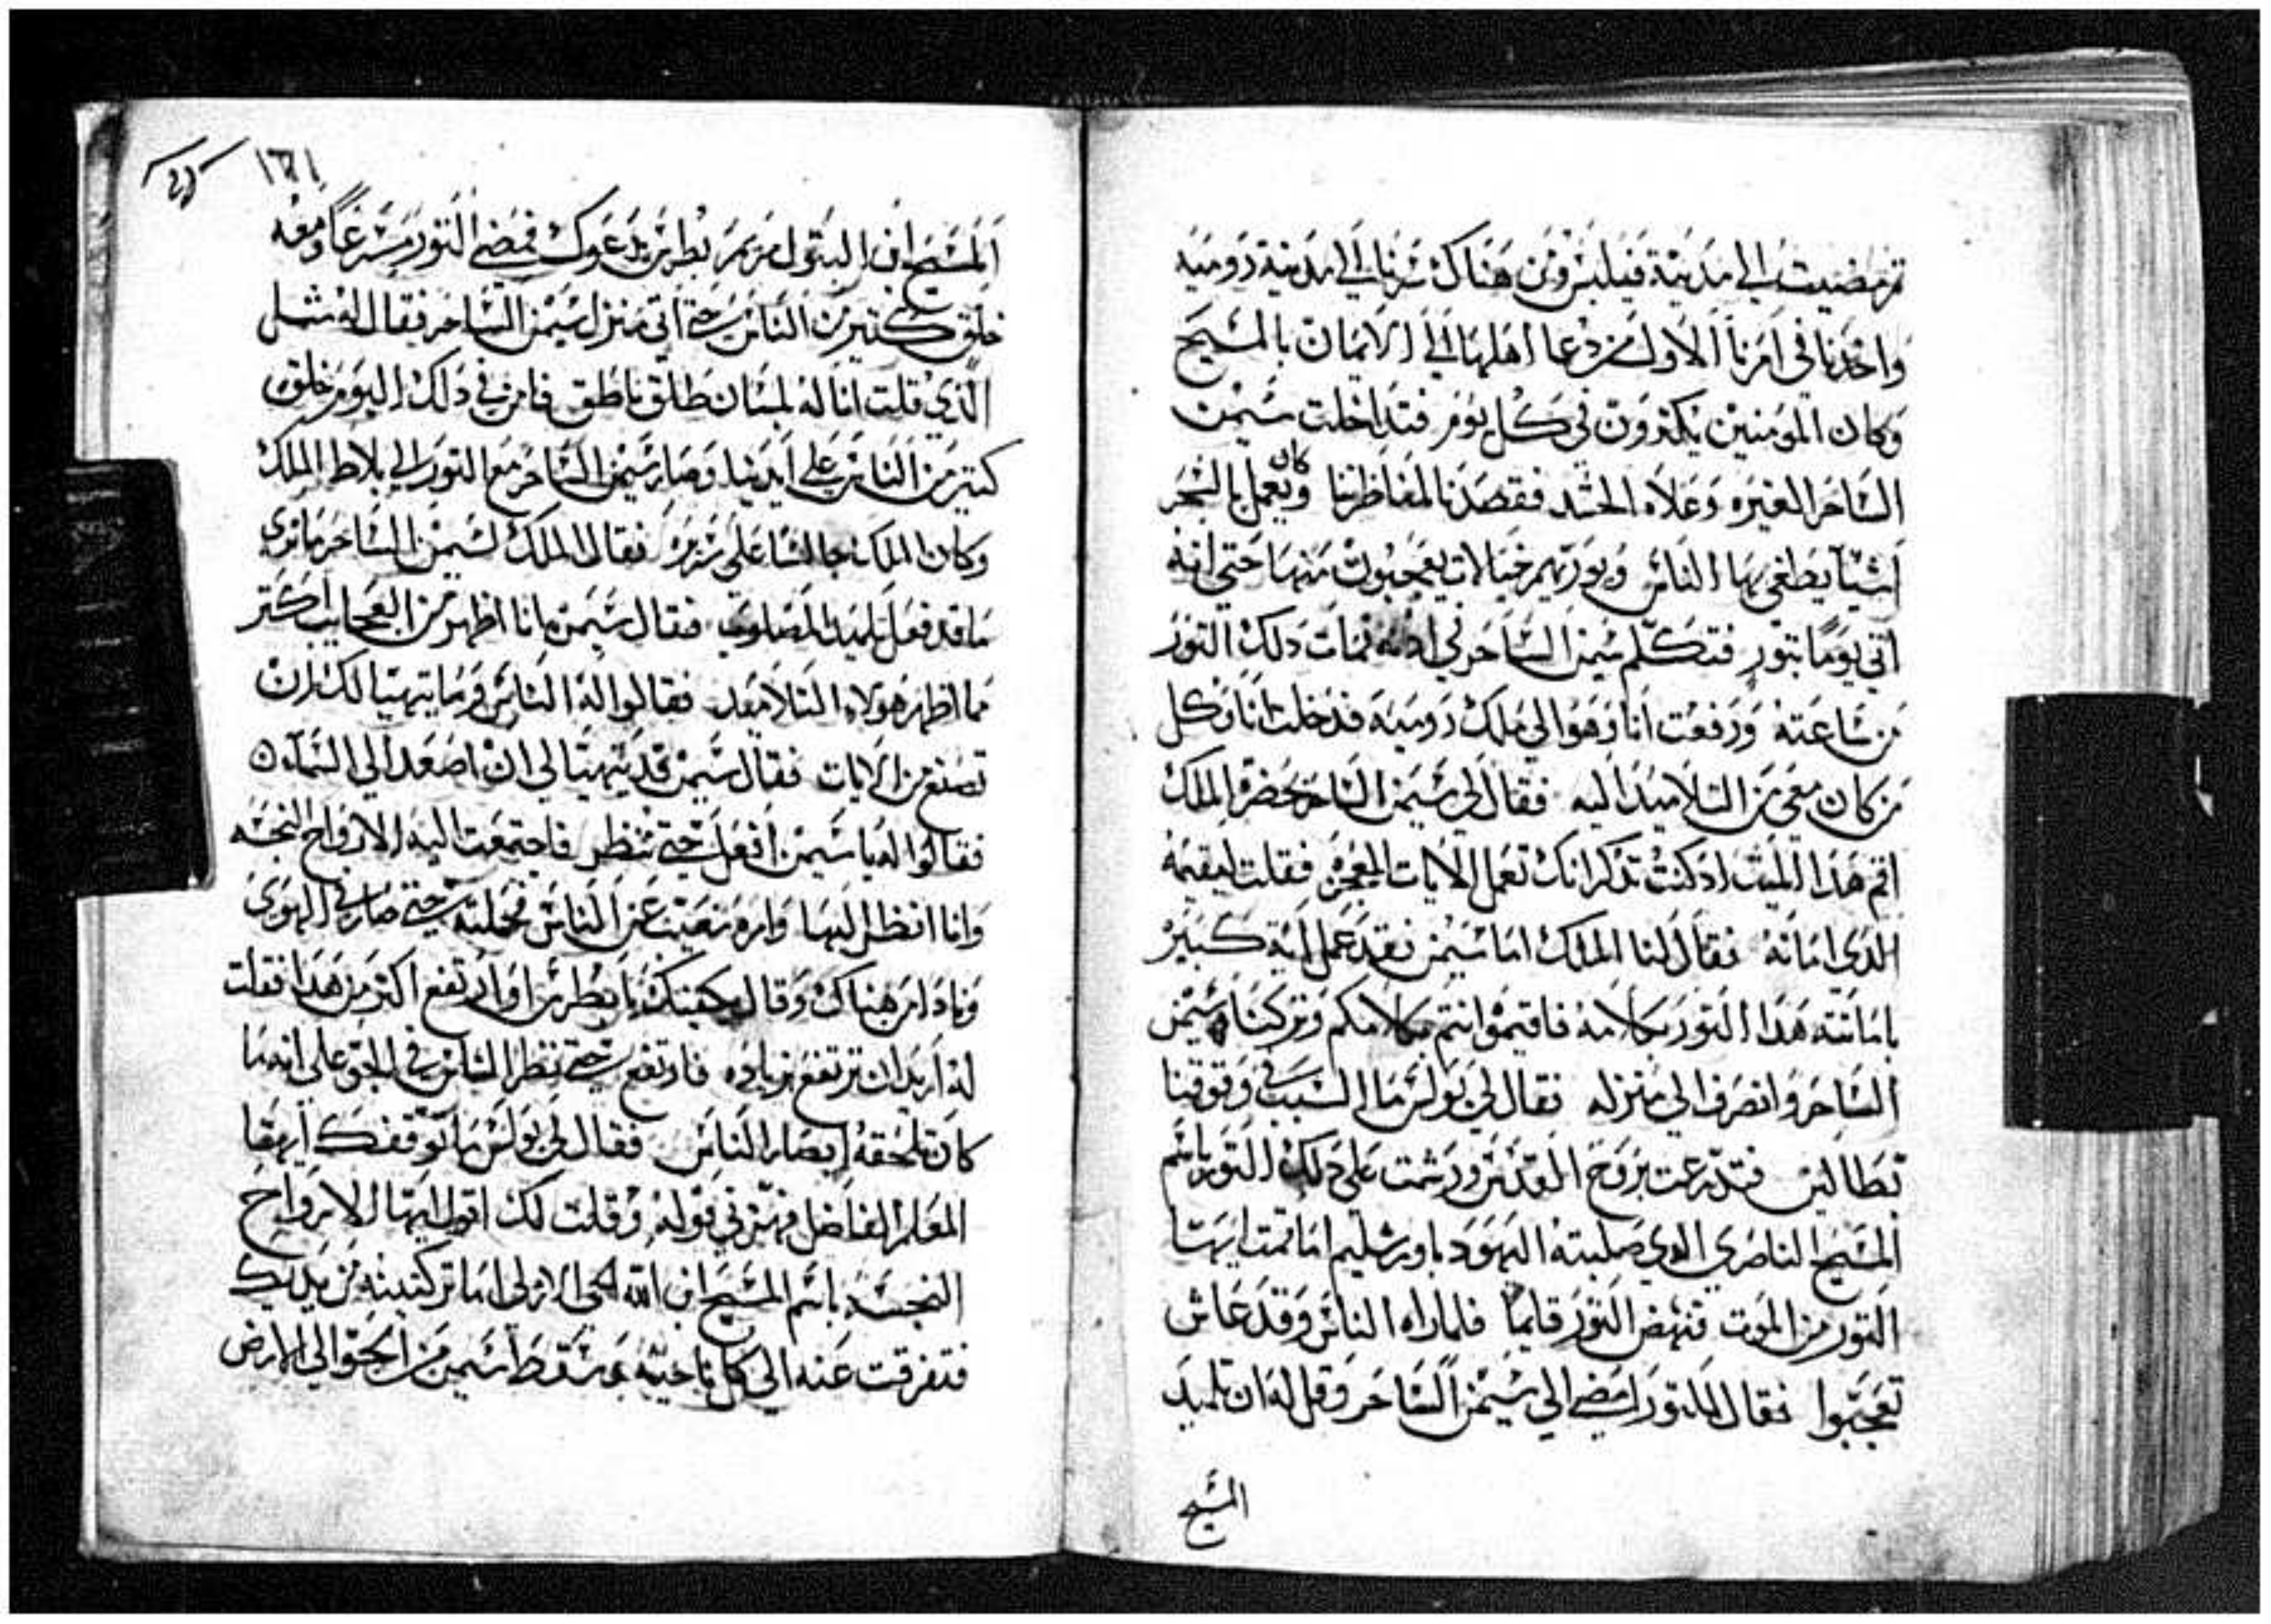 ثم مضيت الي مدينة فيلبس ومن هناك سرنا الي مدينة روميه
واخدنا في امرنا الاول من دعا اهلها الي الايمان بالمسيح
وكان المومنين يكترون في كل يوم فتداخلت سيمن
الساحر الغيره وعلاه الحسد فقصدنا لمناظرنا وكان يعمل بالسحر
اشيا يطغي بها الناس ويوريهم خيالات يعجبون منها حتي انه
اتي يوما بتور فتكلم سيمن الساحر في ادنه فمات دلك التور
من ساعته ورفعت انا وهو الي ملك روميه فدخلت انا وكل
من كان معي من التلاميد اليه فقال لي سيمن الساحر بحضرة الملك
اقم هدا الميت اد كنت تدكر انك تعمل الايات المعجزه فقلت ليقيمه
الدي اماته فقال لنا الملك اما سيمن فقد عمل اية كبير
باماتته هدا التور بكلامه فاقيموا انتم بكلامكم وتركنا سيمن
الساحر وانصرف الي منزله فقال لي بولس ما السبب في وقوفنا
بطالين فتدرعت بروح القدس ورشمت علي دلك التور باسم
المسيح الناصري الدي صلبته اليهود باورشليم اما قمت ايها
التور من الموت فنهض التور قايما فلما راه الناس وقد عاش
تعجبوا فقال للتور امضي الي سيمن الساحر وقل له ان تلميد
المسيح
١٦١
المسيح ابن البتول مريم بطرس يدعوك فمضي التور مسرعا ومعه
خلق كتير من الناس حتي اتي منزل سيمن الساحر فقال له متل
الدي قلت انا له بلسان طلق ناطق فامن في دلك اليوم خلق
كتير من الناس علي ايدينا وصار سيمن الساحر مع التور الي بلاط الملك
وكان الملك جالسا علي سريره فقال الملك لسيمن الساحر ما تري
ما قد فعل تلميد المصلوب فقال سيمن انا اظهر من العجايب اكتر
مما اظهر هولاء التلاميد فقالوا له الناس وما يتهيا لك ان
تصنع من الايات فقال سيمن قد يتهيا لي ان اصعد الي السماء ه
فقالوا له يا سيمن افعل حتي ننظر فاجتمعت اليه الارواح النجسه
وانا انظر اليها وامره تغيب عن الناس فحملته حتي صار في الهوي
ونادا من هناك وقال يا بطرس او ارتفع اكتر من هدا فقلت
له اريد ان ترتفع زياده فارتفع حتي نظر الناس في الجو علي انه ما
كان تلحقه ابصار الناس فقال لي بولس ما توقفك ايها
المعلم الفاضل فهزني قوله وقلت لك اقول ايتها الارواح
النجسه باسم المسيح ابن الله الحي الازلي اما تركتينه من يديك
فتفرقت عنه الي كل ناحيه وسقط سيمن من الجو الي الارض